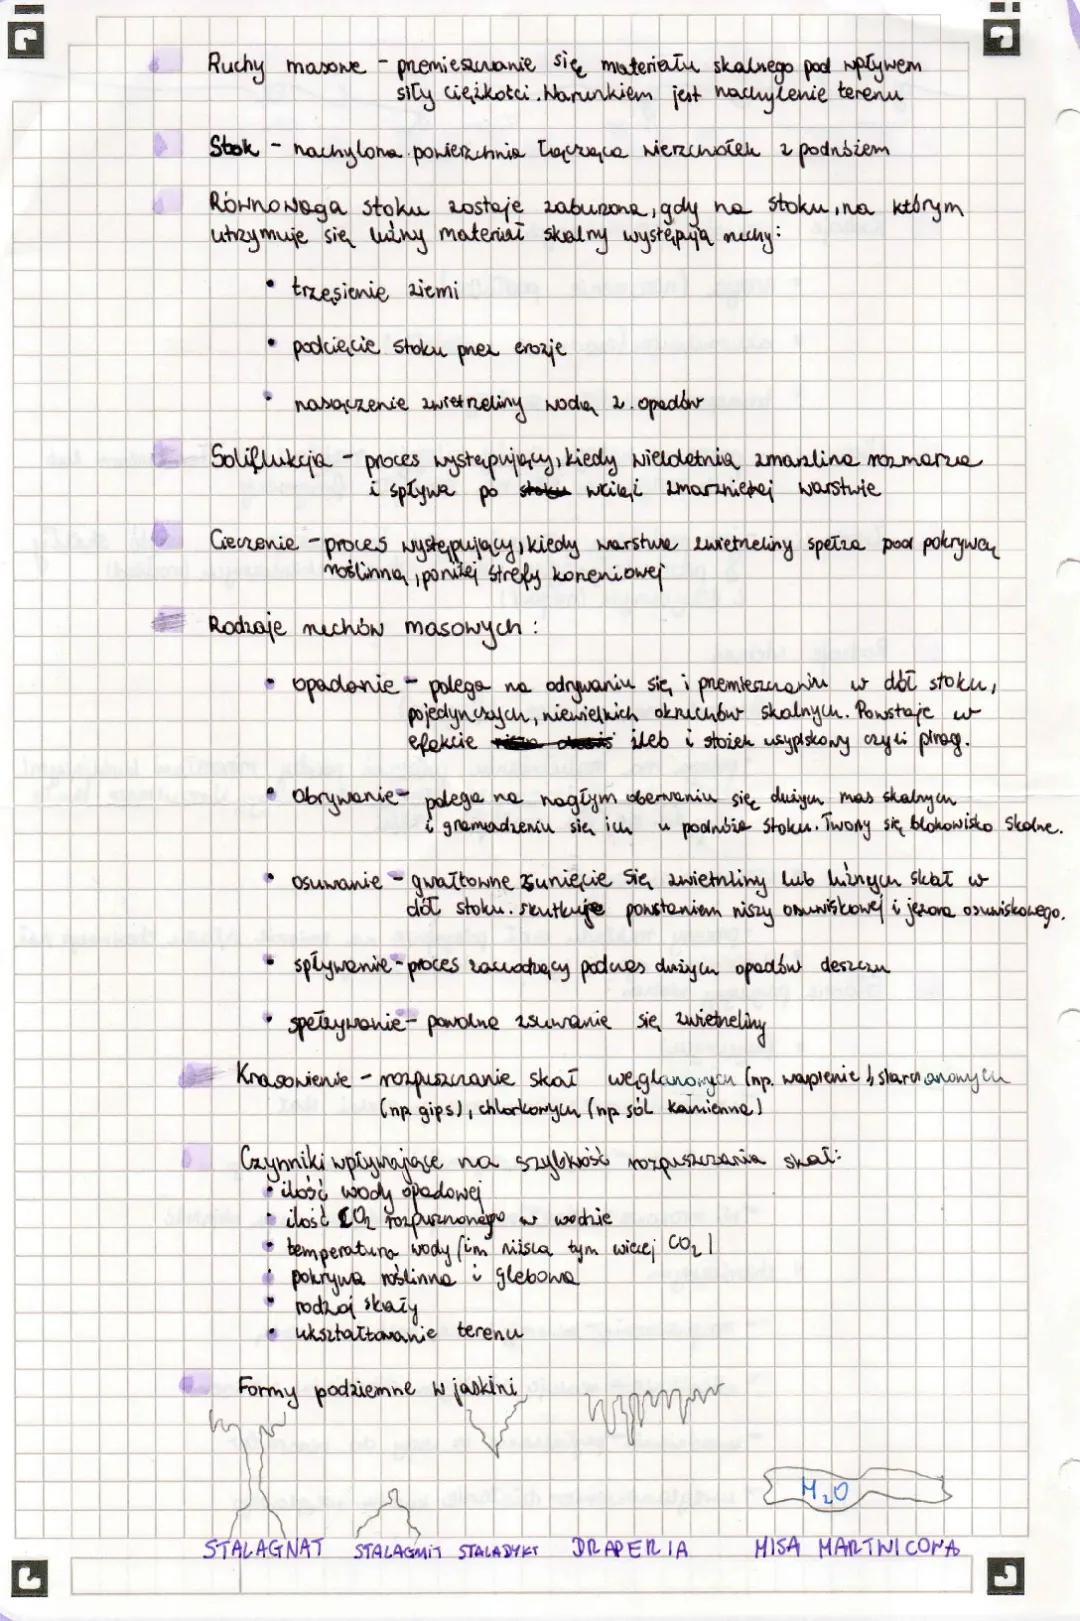 Ruchy masowe - przemieszczanie się materiału skalnego pod wpływem
siły ciężkości. Warunkiem jest nachylenie terenu
Stok - nachylona powierzchnia łącząca wierzchołek z podnóżem
Równowaga stoku zostaje zaburzona, gdy na stoku, na którym
utrzymuje się luźny materiał skalny występują ruchy:
• trzęsienie ziemi
• podcięcie stoku przez erozje
• nasączenie zwietrzeliny wodą z opadów
Soliflukcja - proces występujący, kiedy wieloletnia zmarzlina rozmarza
i spływa po stoku wciąż zmarzniętej warstwie
Cieczenie - proces występujący, kiedy warstwa zwietrzeliny spełza pod pokrywą
roślinną, poniżej strefy korzeniowej
Rodzaje ruchów masowych:
• opadanie - polega na odrywaniu się i przemieszczaniu w dół stoku,
pojedynczych, niewielkich okruchów skalnych. Powstaje w
efekcie żleb i stożek usypiskowy czyli piarg.
• obrywanie - polega na nagłym oberwaniu się dużych mas skalnych
i gromadzeniu się ich u podnóża stoku. Tworzy się blokowisko skalne.
• osuwanie - gwałtowne zsunięcie się zwietrzliny lub luźnych skał w
dół stoku. skutkuje powstaniem niszy osuwiskowej i jeziora osuwiskowego.
• spływanie - proces zachodzący podczas dużych opadów deszczu
• spełzywanie - powolne zsuwanie się zwietrzeliny
Krasowienie - rozpuszczanie skał węglanowych (np. wapienie), siarczanowych
(np gips), chlorkowych (np sól kamienna)
Czynniki wpływające na szybkość rozpuszczania skał:
• ilość wody opadowej
• ilość CO2 rozpuszczonego w wodzie
• temperatura wody (im niższa tym więcej CO2)
• pokrywa roślinna i glebowa
• rodzaj skały
• ukształtowanie terenu
Formy podziemne w jaskini
H2O
STALAGNAT STALAGMIT STALADYKT DRAPERIA MISA MARTWICOWA